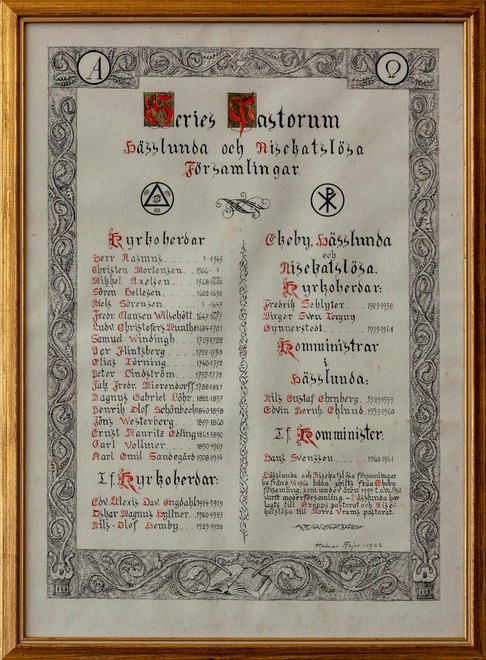 Α
Ω
Series Pastorum
Hässlunda och Risekatslösa
Församlingar
Kyrkoherdar
Herr Rasmus
Christen Mortensen
Mikkel Axelsen
Sören Hellesen 1602-1630
Niels Sörensen
Fredr Clausen Wilschött
Ludv Christofers Munthe 1684-1701
Samuel Windingh 1703-1722
Per Flintzberg 1722-1730
Elias Törning 1740-1752
Peter Lindström 1752-1778
Jak Fredr. Mierendorff 1780-1821
Magnus Gabriel Löhr 1822-1837
Henrik Olof Schönbeck 1840-1858
Jöns Westerberg 1859-1860
Ernst Mauritz Edling 1863-1890
Carl Vollmer 1890-1907
Karl Emil Sandegård 1908-1914
T.f. Kyrkoherdar:
Edv Alexis Dav. Engdahl 1914-1919
Oskar Magnus Hyllner 1920-1923
Nils-Olof Hemby 1923-1928
Ekeby, Hässlunda
och
Risekatslösa.
Kyrkoherdar:
Fredrik Sehlyter 1929-1938
Birger Sven Torgny
Gynnerstedt 1939-1961
Komministrar
i
Hässlunda:
Nils Gustaf Ehrnberg 1929-1939
Edvin Bernh. Eklund 1939-1960
T.f. Komminister:
Hans Svensson 1960-1961
Hässlunda och Risekatslösa församlingar
båda skilts från Ekeby
församling, som under åren
varit moderförsamling. - Hässlunda har
lagts till Kropps pastorat och Rise-
katslösa till Norra Vrams pastorat.
1962